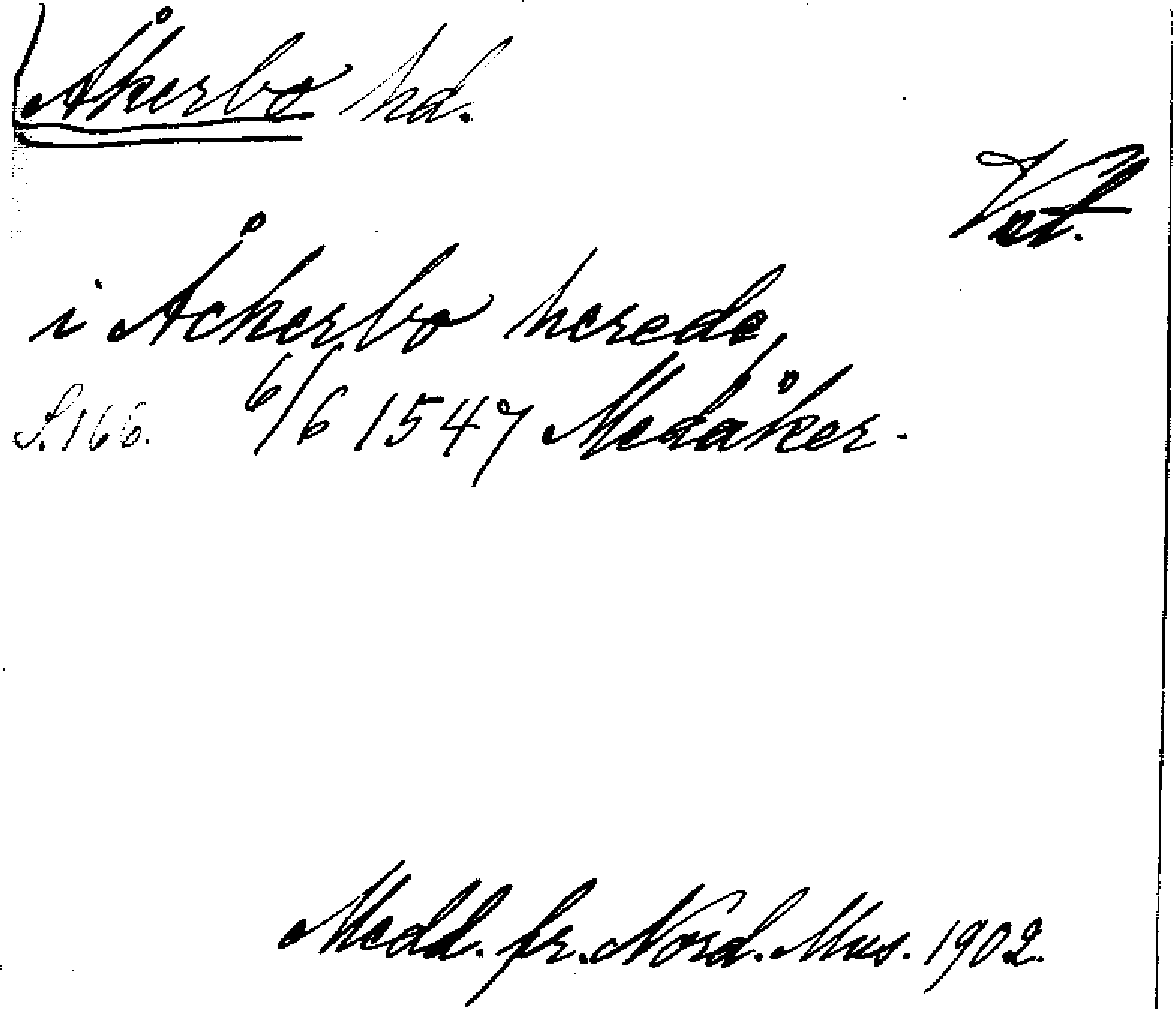 Åkerbo hd.
Vstl.
i Åckerbo herede,
S. 166. 6/6 1547 Medåker.
Medd. fr. Nord. Mus. 1902.